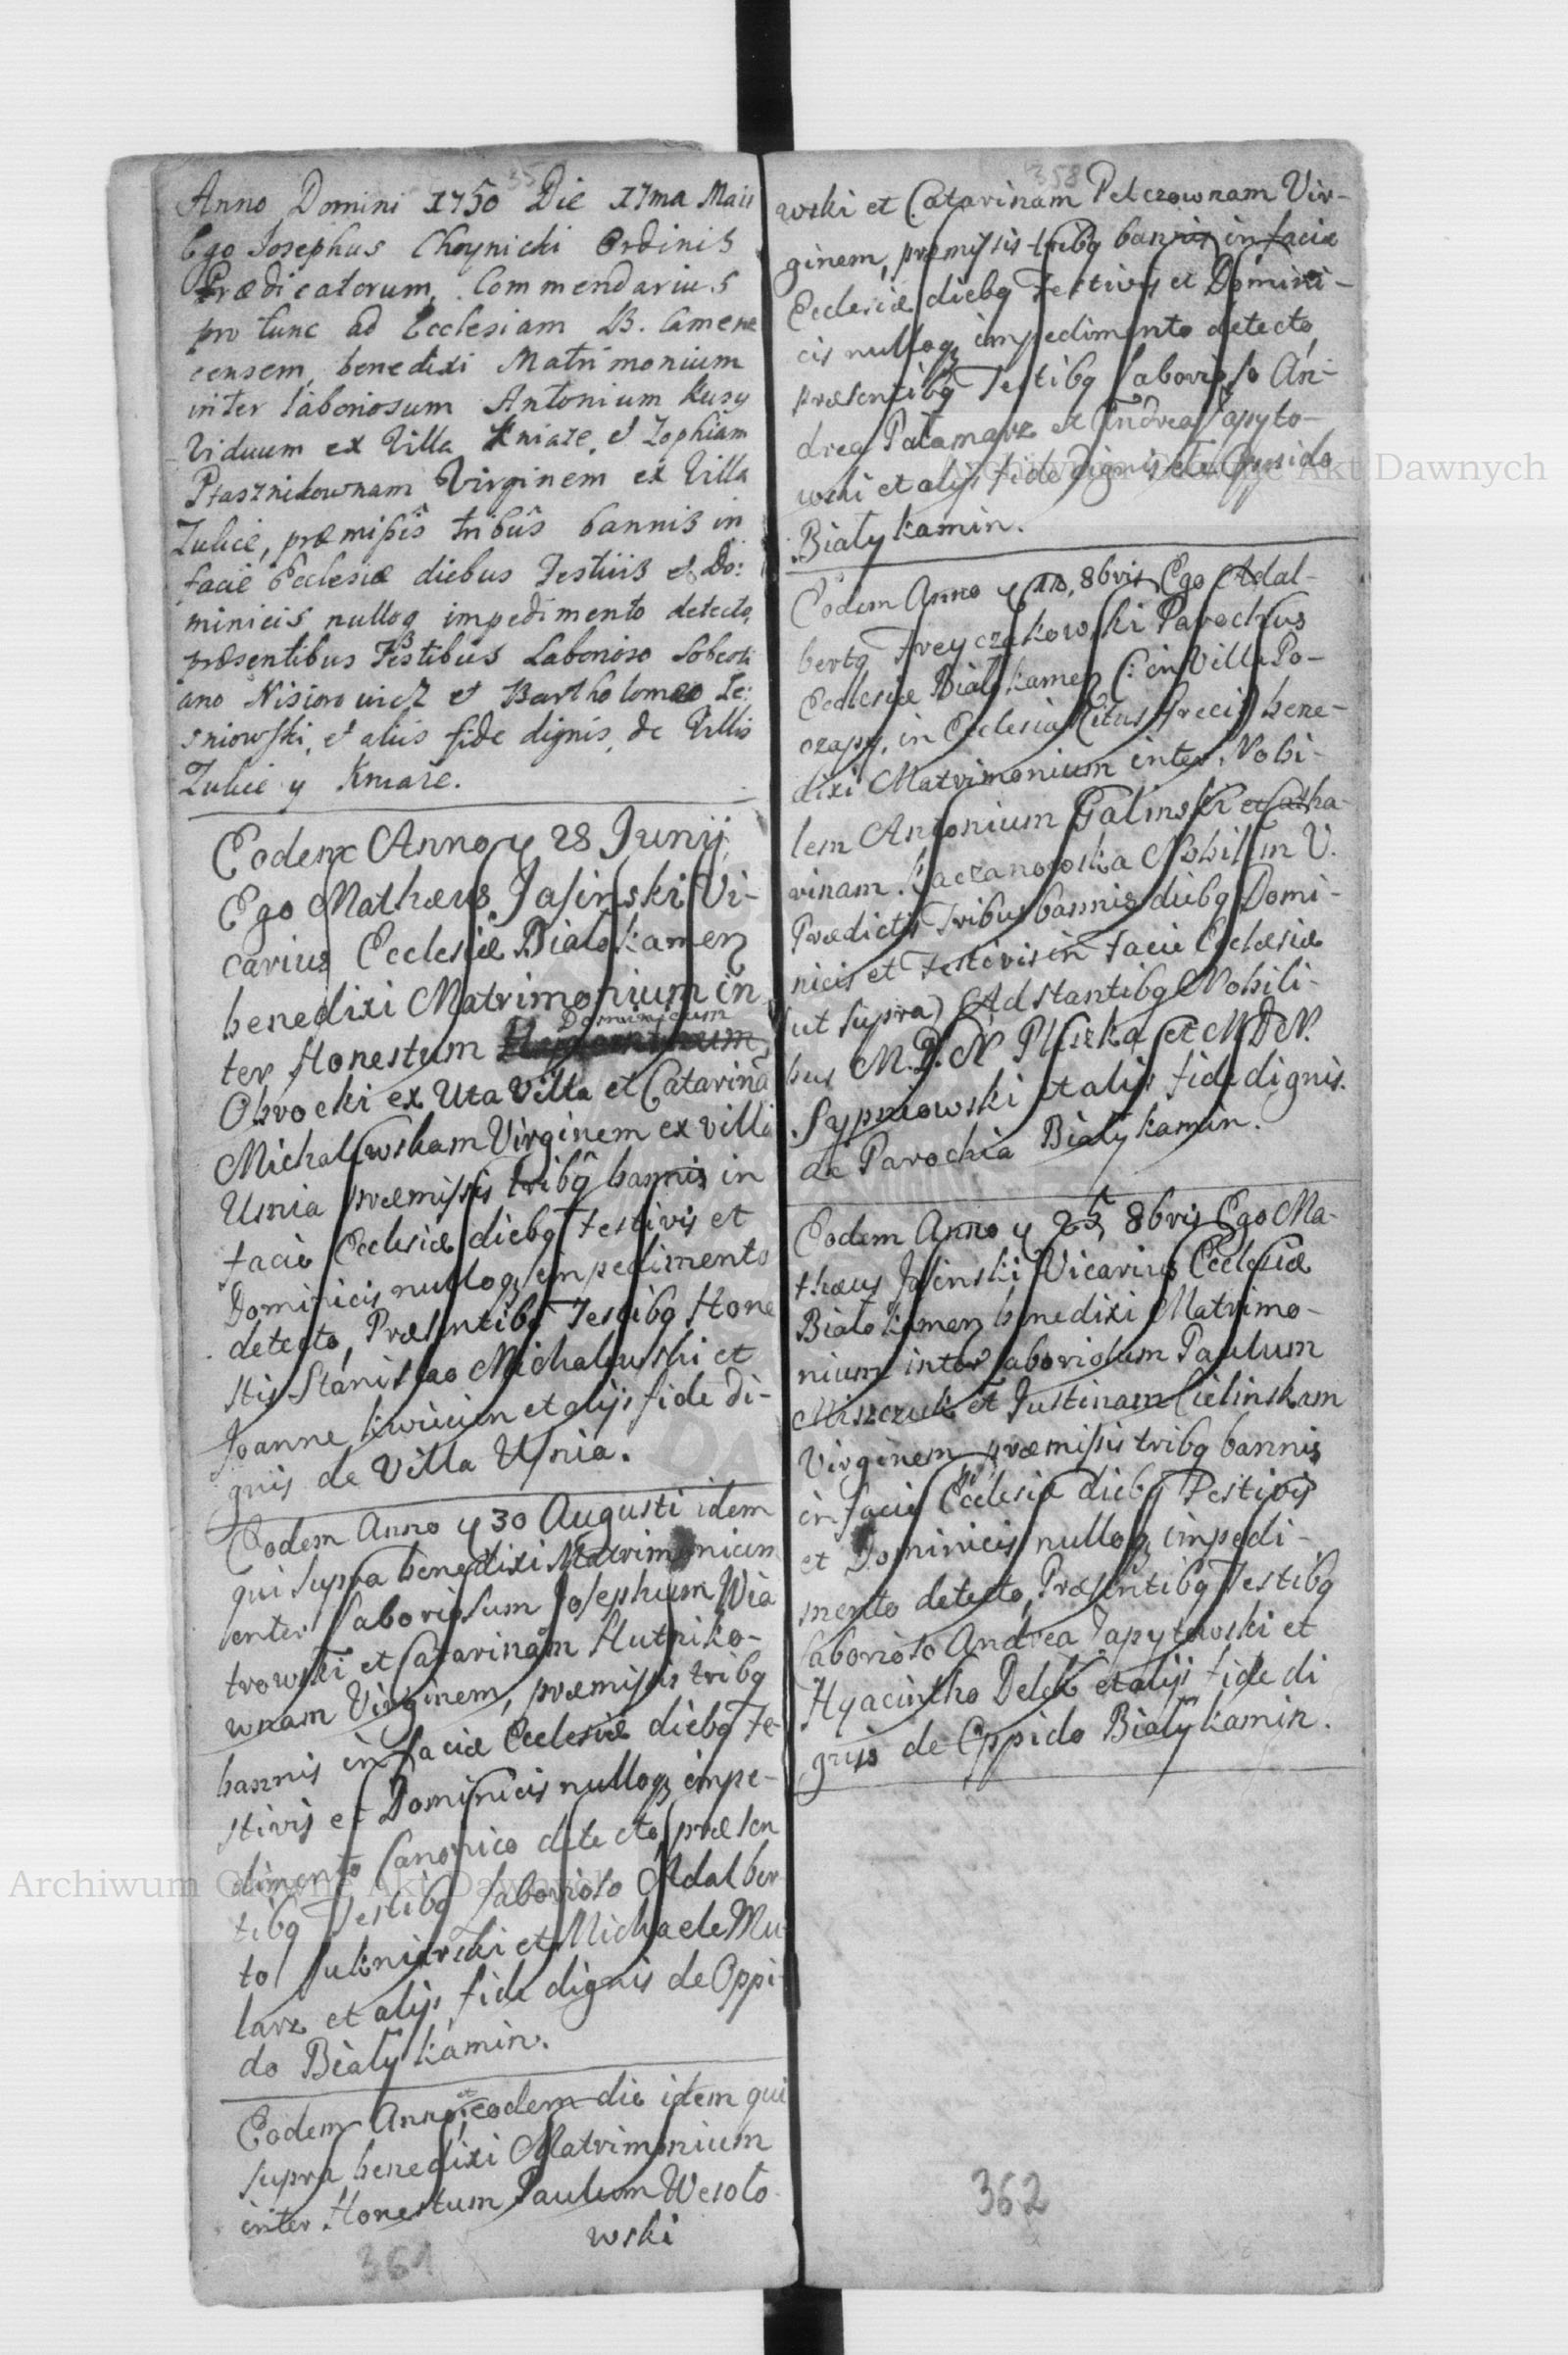 Anno Domini 1750 Die 17ma Maii
Ego Josephus Choynicki Ordinis
Prædicatorum, Commendarius
pro tunc ad Ecclesiam B. Camene
censem, benedixi Matrimonium
inter laboriosum Antonium Kusy
Viduum ex Villa Kniaze, et Zophiam
Ptasznikownam Virginem ex Villa
Zulice, præmissis tribus bannis in
facie Ecclesiæ diebus Festivis et Do:
minicis nulloq impedimento detecto,
præsentibus Testibus Laborioso Sobesti
ano Nisiorowicz et Bartholomeo Le:
sniowski, et aliis fide dignis, de Villis
Zulice y Kniaze.
Eodem Anno y 28 Junij
Ego Mathæus Jasinski Vi-
carius Ecclesiæ Bialokamen
benedixi Matrimonium in
Dominicum
ter Honestum
Obrocki ex Uta Villa et Catarina
Michalewskam Virginem ex villa
Usnia præmissis tribq bannis in
facie Ecclesiæ diebq Festivis et
Dominicis nulloq impedimento
detecto, Præsentibq Testibq Hone
stis Stanislao Michalewski et
Joanne Kwiecien et alijs fide di-
gnis de Villa Usnia.
Eodem Anno y 30 Augusti idem
qui supra benedixi Matrimonium
inter laboriosum Josephum Wia
trowski et Catarinam Hutniko-
wnam Virginem, præmissis tribq
bannis in faciæ Ecclesiæ diebq Fe-
stivis et Dominicis nulloq impe-
dimento Canonico detecto, præsen
tibq Testibq laborioso Adalber
to Sukniarski et Michaele Mu-
larz et alijs fide dignis de Oppi-
do Biały kamin.
Eodem Anno, et eodem die idem qui
supra benedixi Matrimonium
inter Honestum Paulum Wesolo-
wski
361
358
wski et Catarinam Pelczownam Vir-
ginem, præmissis tribq bannis in faciæ
Ecclesiæ diebq Festivis et Domini-
cis nulloq impedimento detecto,
præsentibq Testibq laborioso An-
drea Palamarz et Andrea Zapyto-
wski et alijs fide dignis de Oppido
Biały kamin.
Eodem Anno y 8bris Ego Adal-
bertq Parochus
Ecclesiæ Bialokamen (: in Villa Po-
czapy, in Ecclesia Ritus Græci) bene-
dixi Matrimonium inter Nobi-
lem Antonium Galinski et Catha-
rinam Kaczanowska Nobilem V.
Prædictis Tribus bannis diebq Domi-
nicis et Festivis in facie Ecclæsiæ
ut supra) Adstantibq Nobili-
bus M.D.N. et M.D.N.
Sypniowski et alijs fide dignis.
de Parochia Biały kamin.
Eodem Anno y 25 8bris Ego Ma-
thæus Jasinski Vicarius Ecclesiæ
Bialokamen benedixi Matrimo-
nium inter laboriosum Paulum
Miszczuk et Justinam Cielinskam
Virginem præmissis tribq bannis
in facie Ecclesiæ diebq Festivis
et Dominicis nulloq impedi-
mento detecto, Præsentibq Testibq
laborioso Andrea Zapytowski et
Hyacintho et alijs fide di
gnis de Oppido Biały kamin.
362
Archiwum Główne Akt Dawnych
Archiwum Główne Akt Dawnych